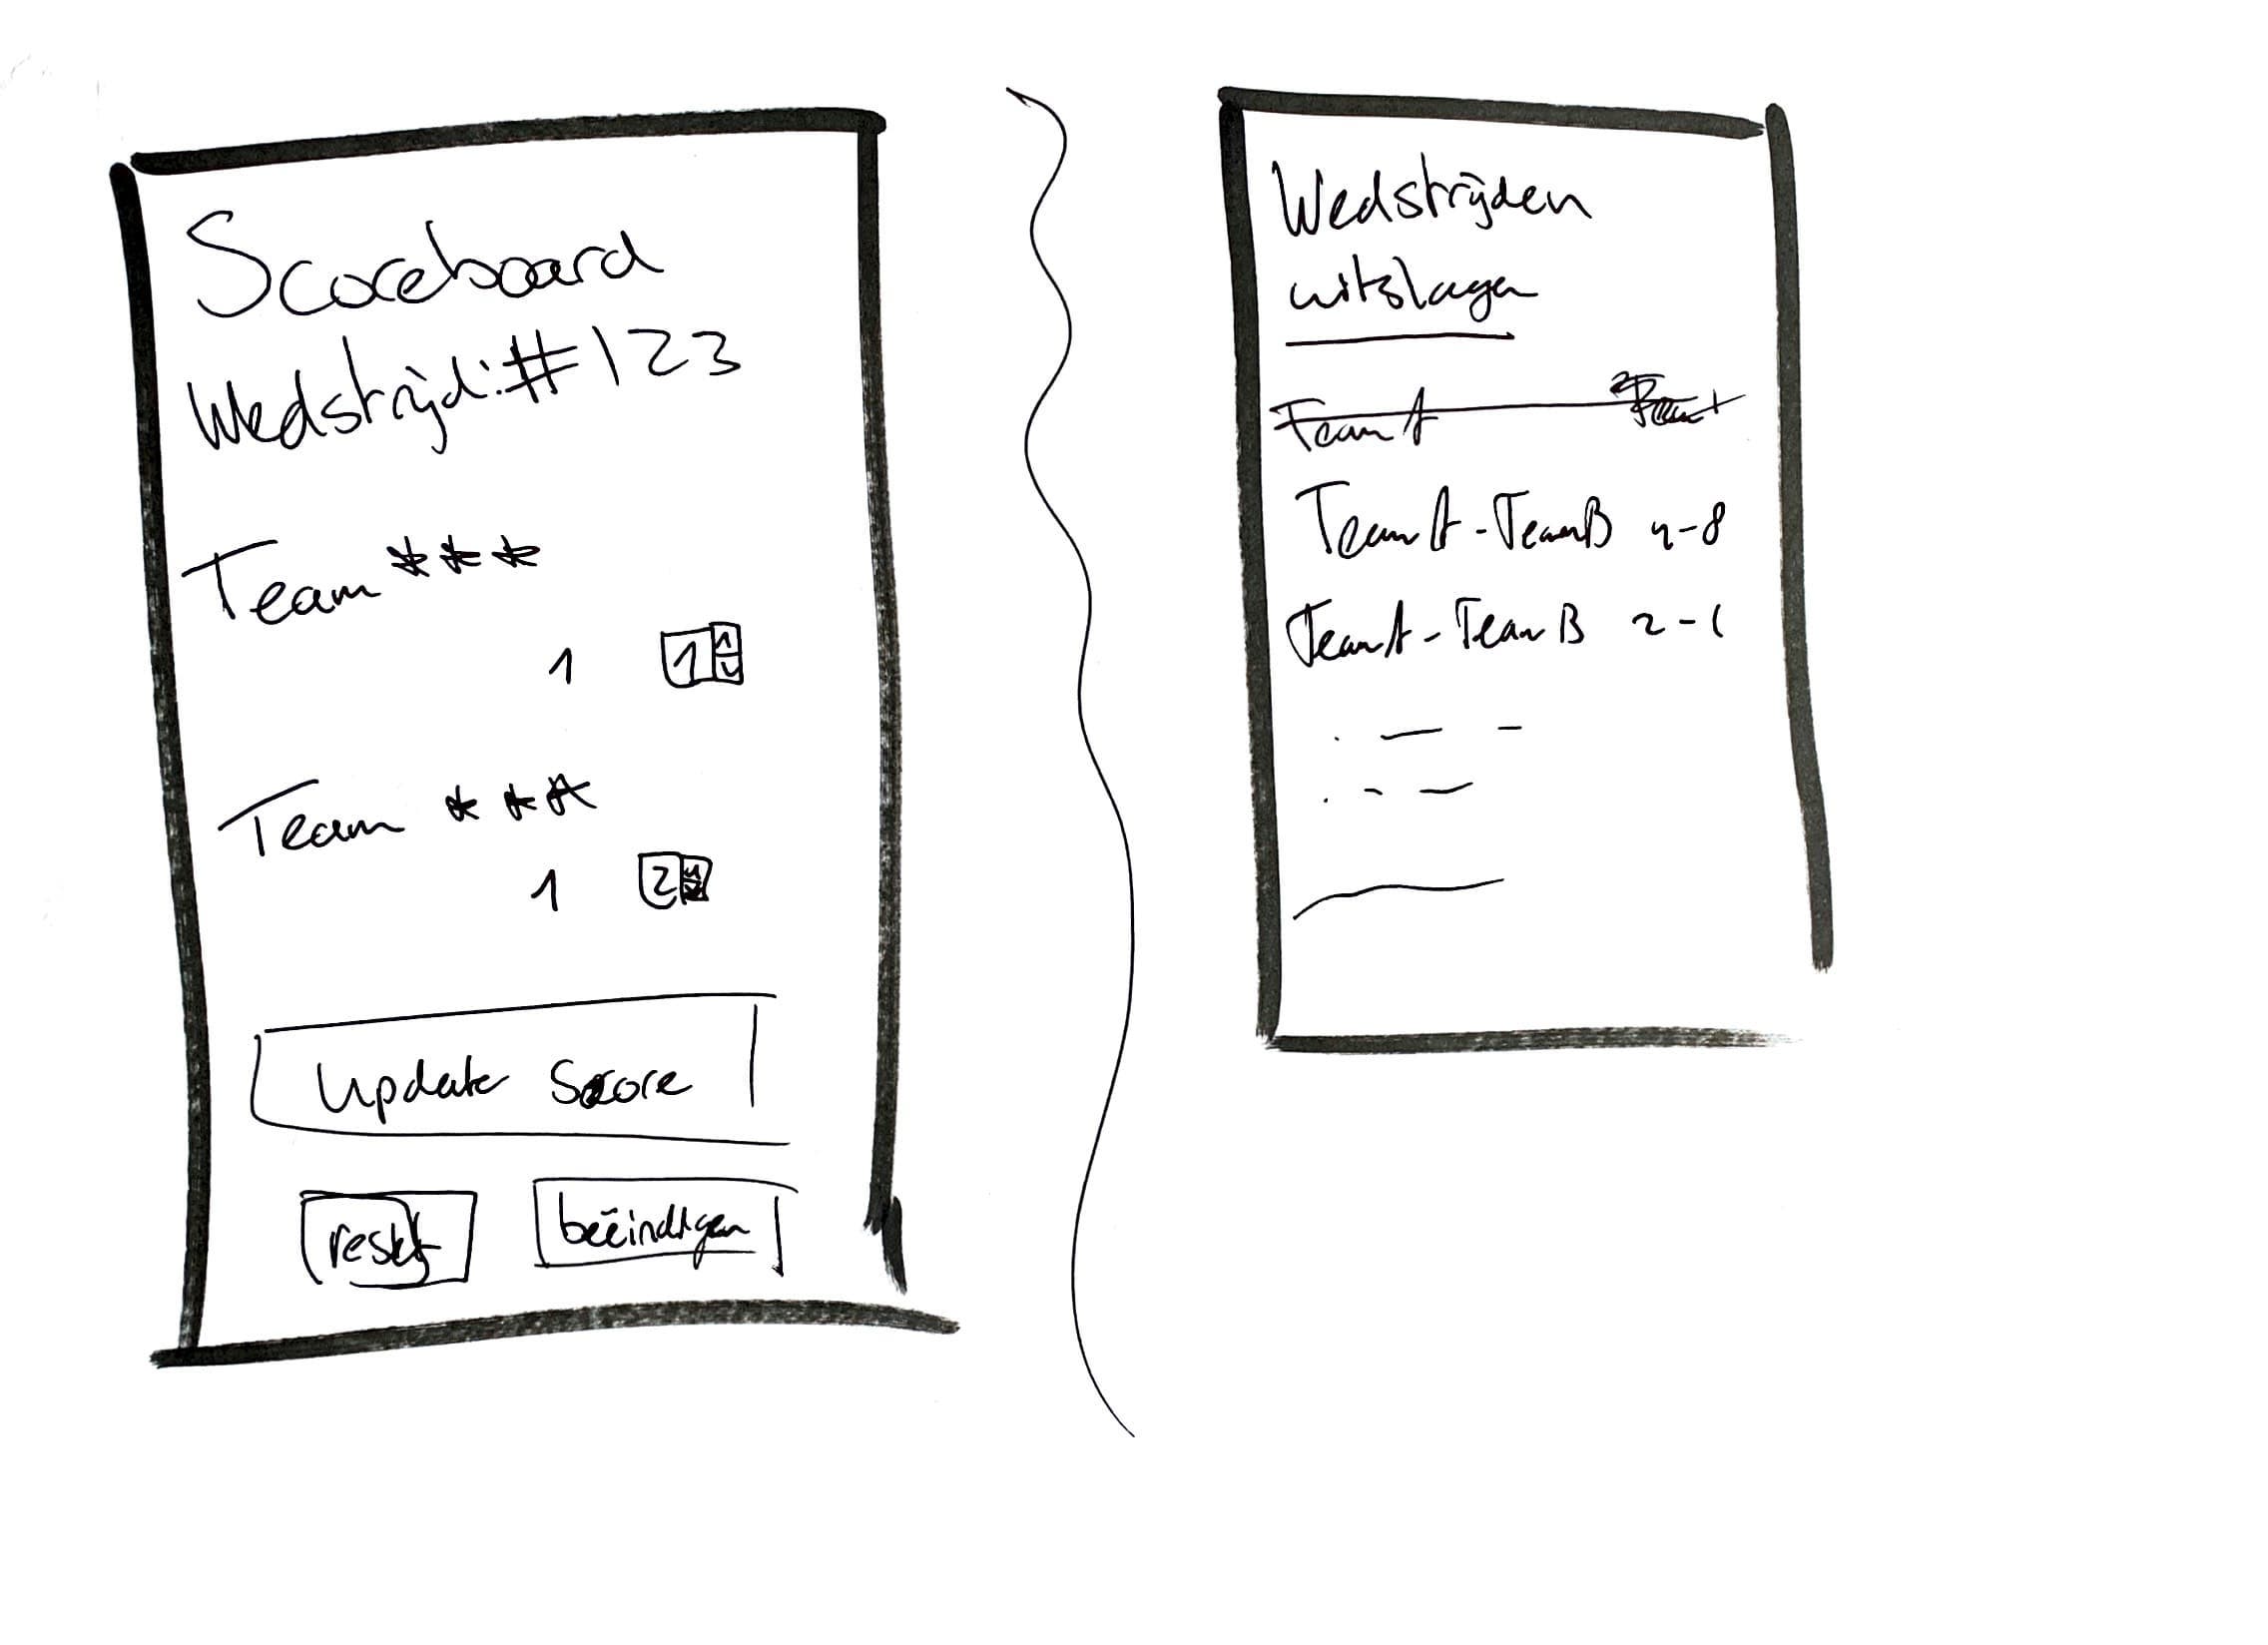 Scoreboard
Wedstrijd: #123
Team ***
1 1
Team ***
1 2
Update Score
reset
beëindigen
Wedstrijden
uitslagen
Team A
Team A - Team B 4-8
Team A - Team B 2-1